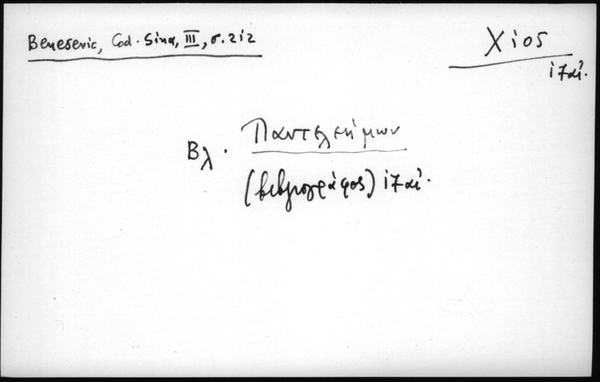 Benesevic, Cod. Sina, III, σ. 212
Χίος
17 αἰ.
Βλ. Παντελεήμων
(βιβλιογράφος) 17 αἰ.